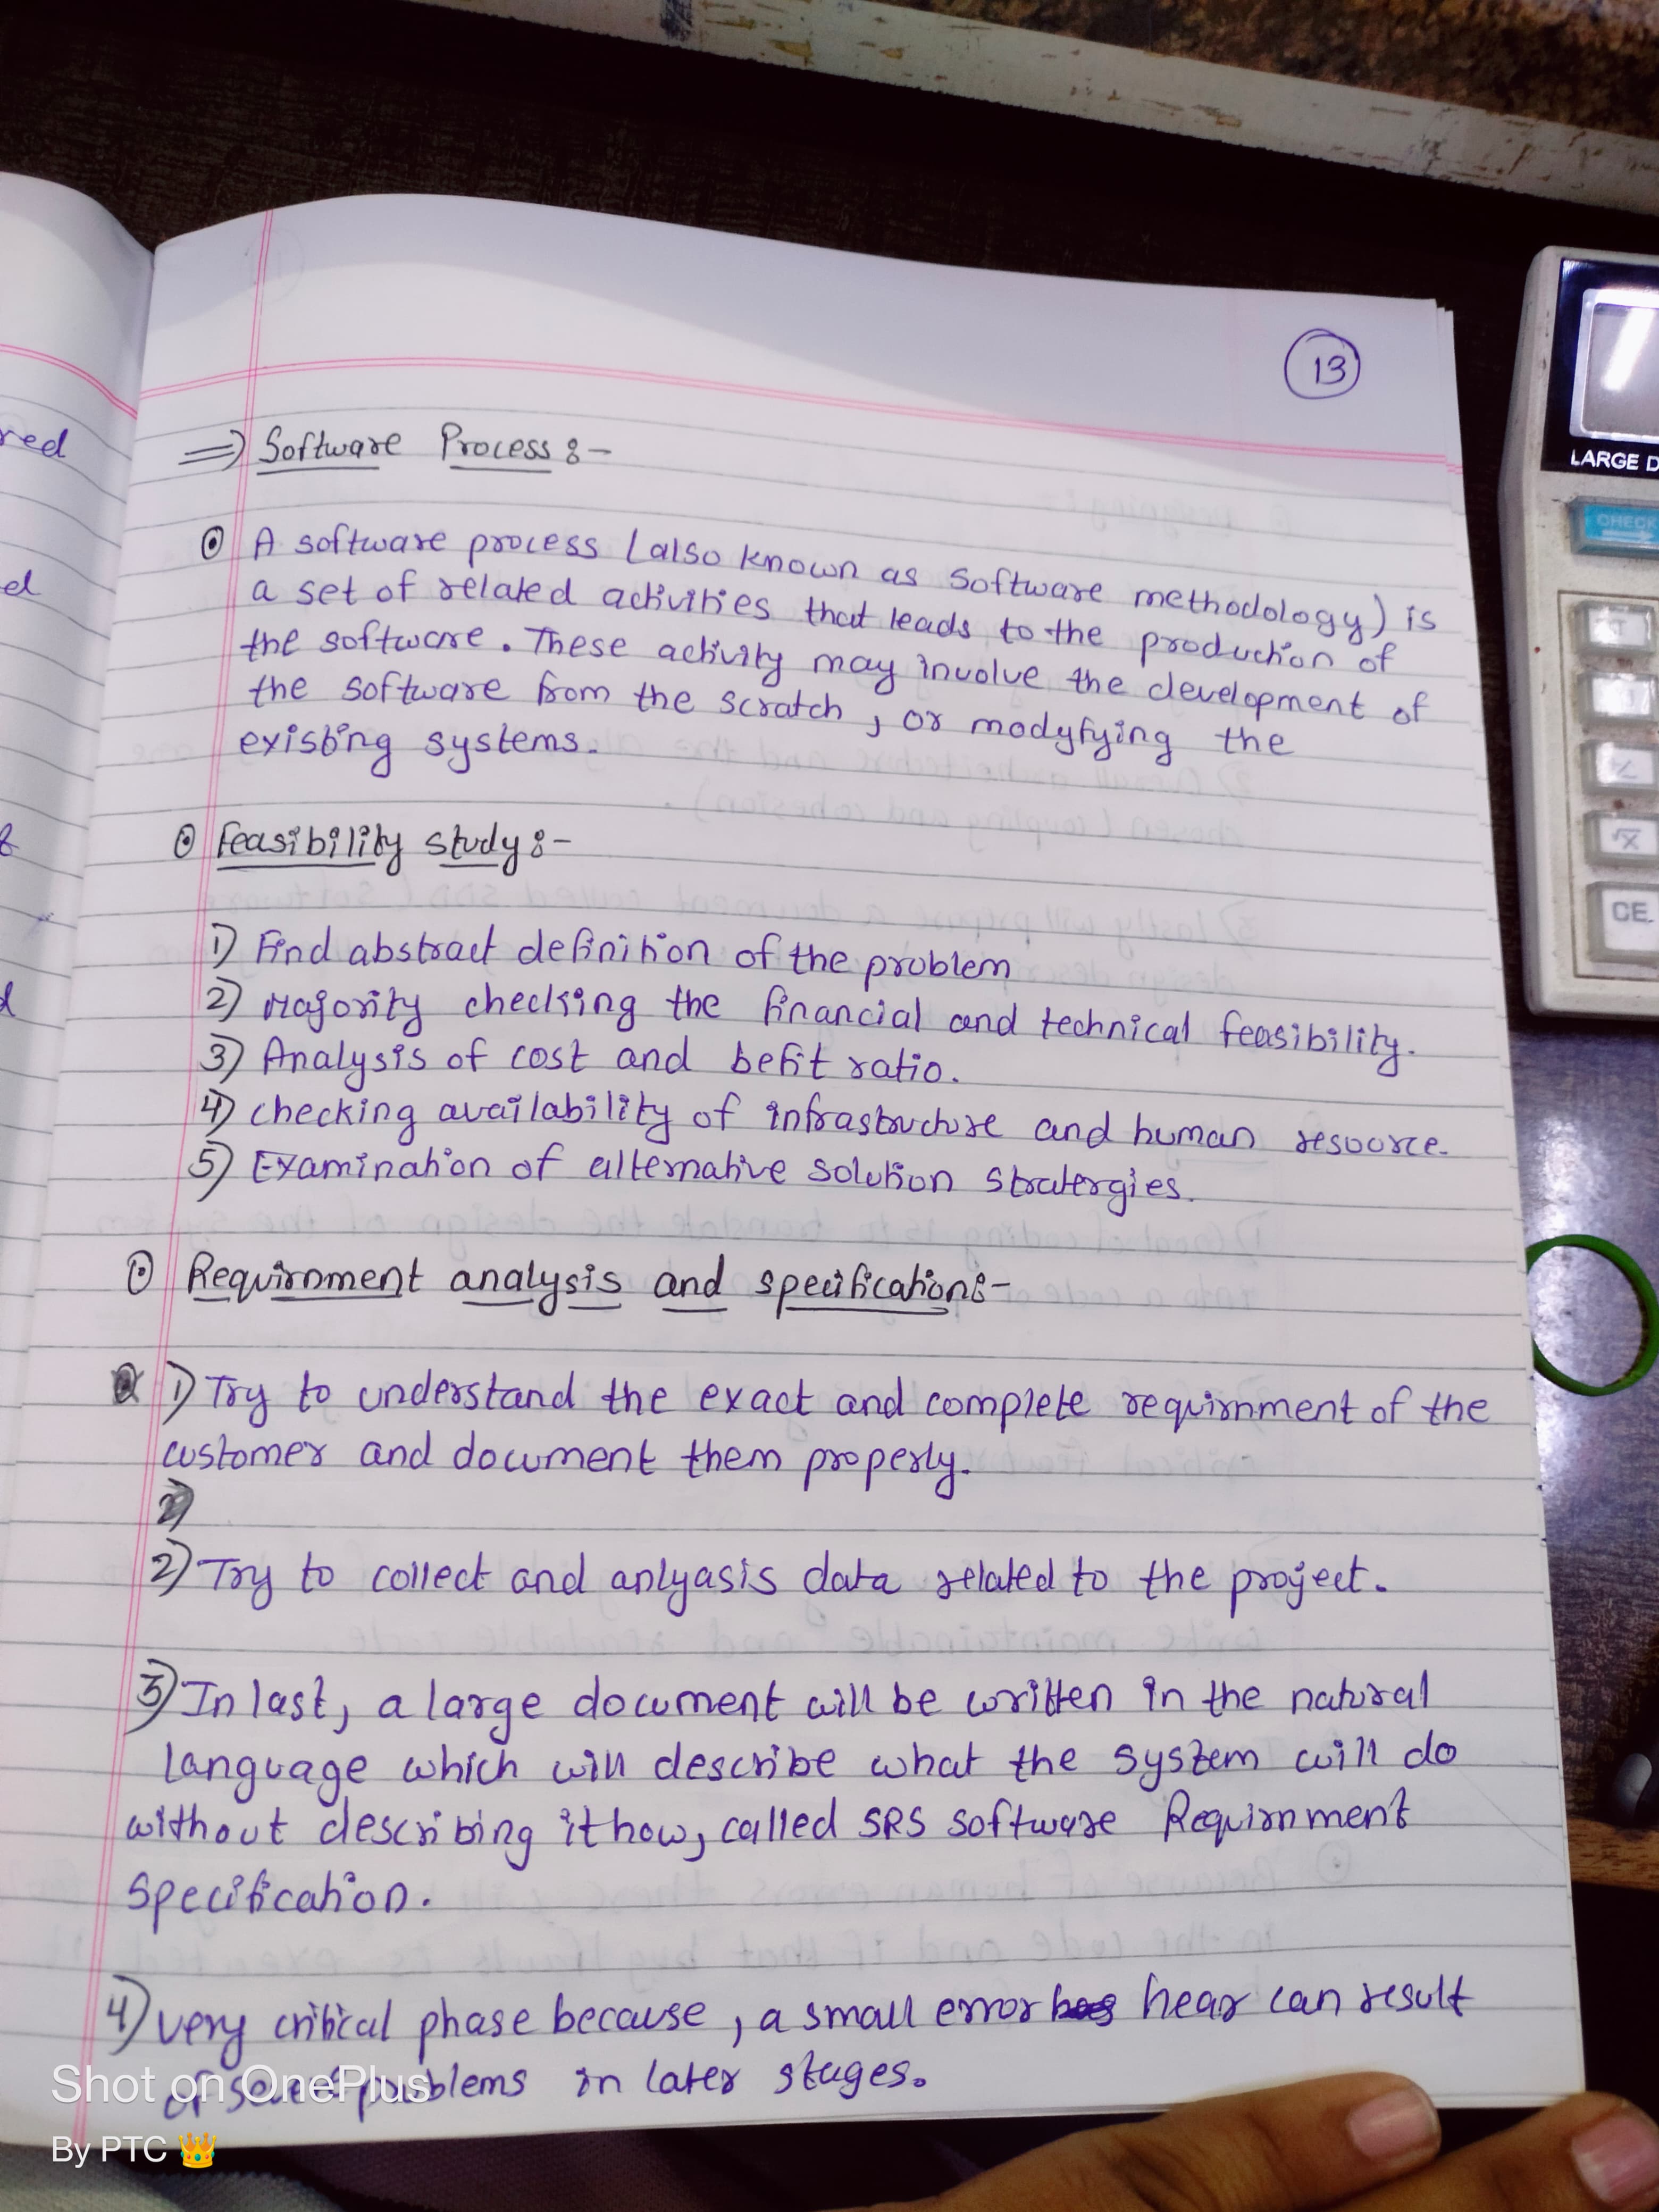 13
=> Software Process :-
A software process (also known as software methodology) is
a set of related activities that leads to the production of
the software. These activity may involve the development of
the software from the scratch, or modyfying the
existing systems.
Feasibility study :-
1) Find abstract definition of the problem
2) Majority checking the financial and technical feasibility.
3) Analysis of cost and befit ratio.
4) checking availability of infrastructure and human resource.
5) Examination of alternative solution stratergies.
Requirnment analysis and specification :-
1) Try to understand the exact and complete requirnment of the
customer and document them properly.
2)
2) Try to collect and anlyasis data related to the project.
3) In last, a large document will be written in the natural
language which will describe what the system will do
without describing it how, called SRS software Requirnment
specification.
4) very critical phase because, a small error hear can result
of problems in later stages.
red
ed
LARGE D
CHECK
√X
CE
Shot on OnePlus
By PTC